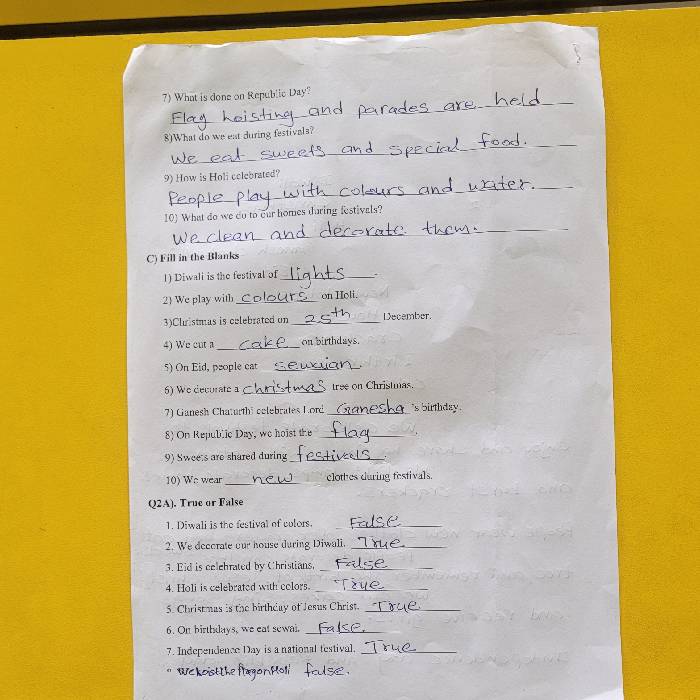 7) What is done on Republic Day?
Flag hoisting and parades are held
8)What do we eat during festivals?
We eat sweets and special food.
9) How is Holi celebrated?
People play with colours and water.
10) What do we do to our homes during festivals?
We clean and decorate them.
C) Fill in the Blanks
1) Diwali is the festival of lights.
2) We play with colours on Holi.
3)Christmas is celebrated on 25th December.
4) We cut a cake on birthdays.
5) On Eid, people eat sewaian.
6) We decorate a christmas tree on Christmas.
7) Ganesh Chaturthi celebrates Lord Ganesha 's birthday.
8) On Republic Day, we hoist the flag.
9) Sweets are shared during festivals.
10) We wear new clothes during festivals.
Q2A). True or False
1. Diwali is the festival of colors. False
2. We decorate our house during Diwali. True
3. Eid is celebrated by Christians. False
4. Holi is celebrated with colors. True
5. Christmas is the birthday of Jesus Christ. True
6. On birthdays, we eat sewai. False.
7. Independence Day is a national festival. True
We hoist the flag on Holi false.